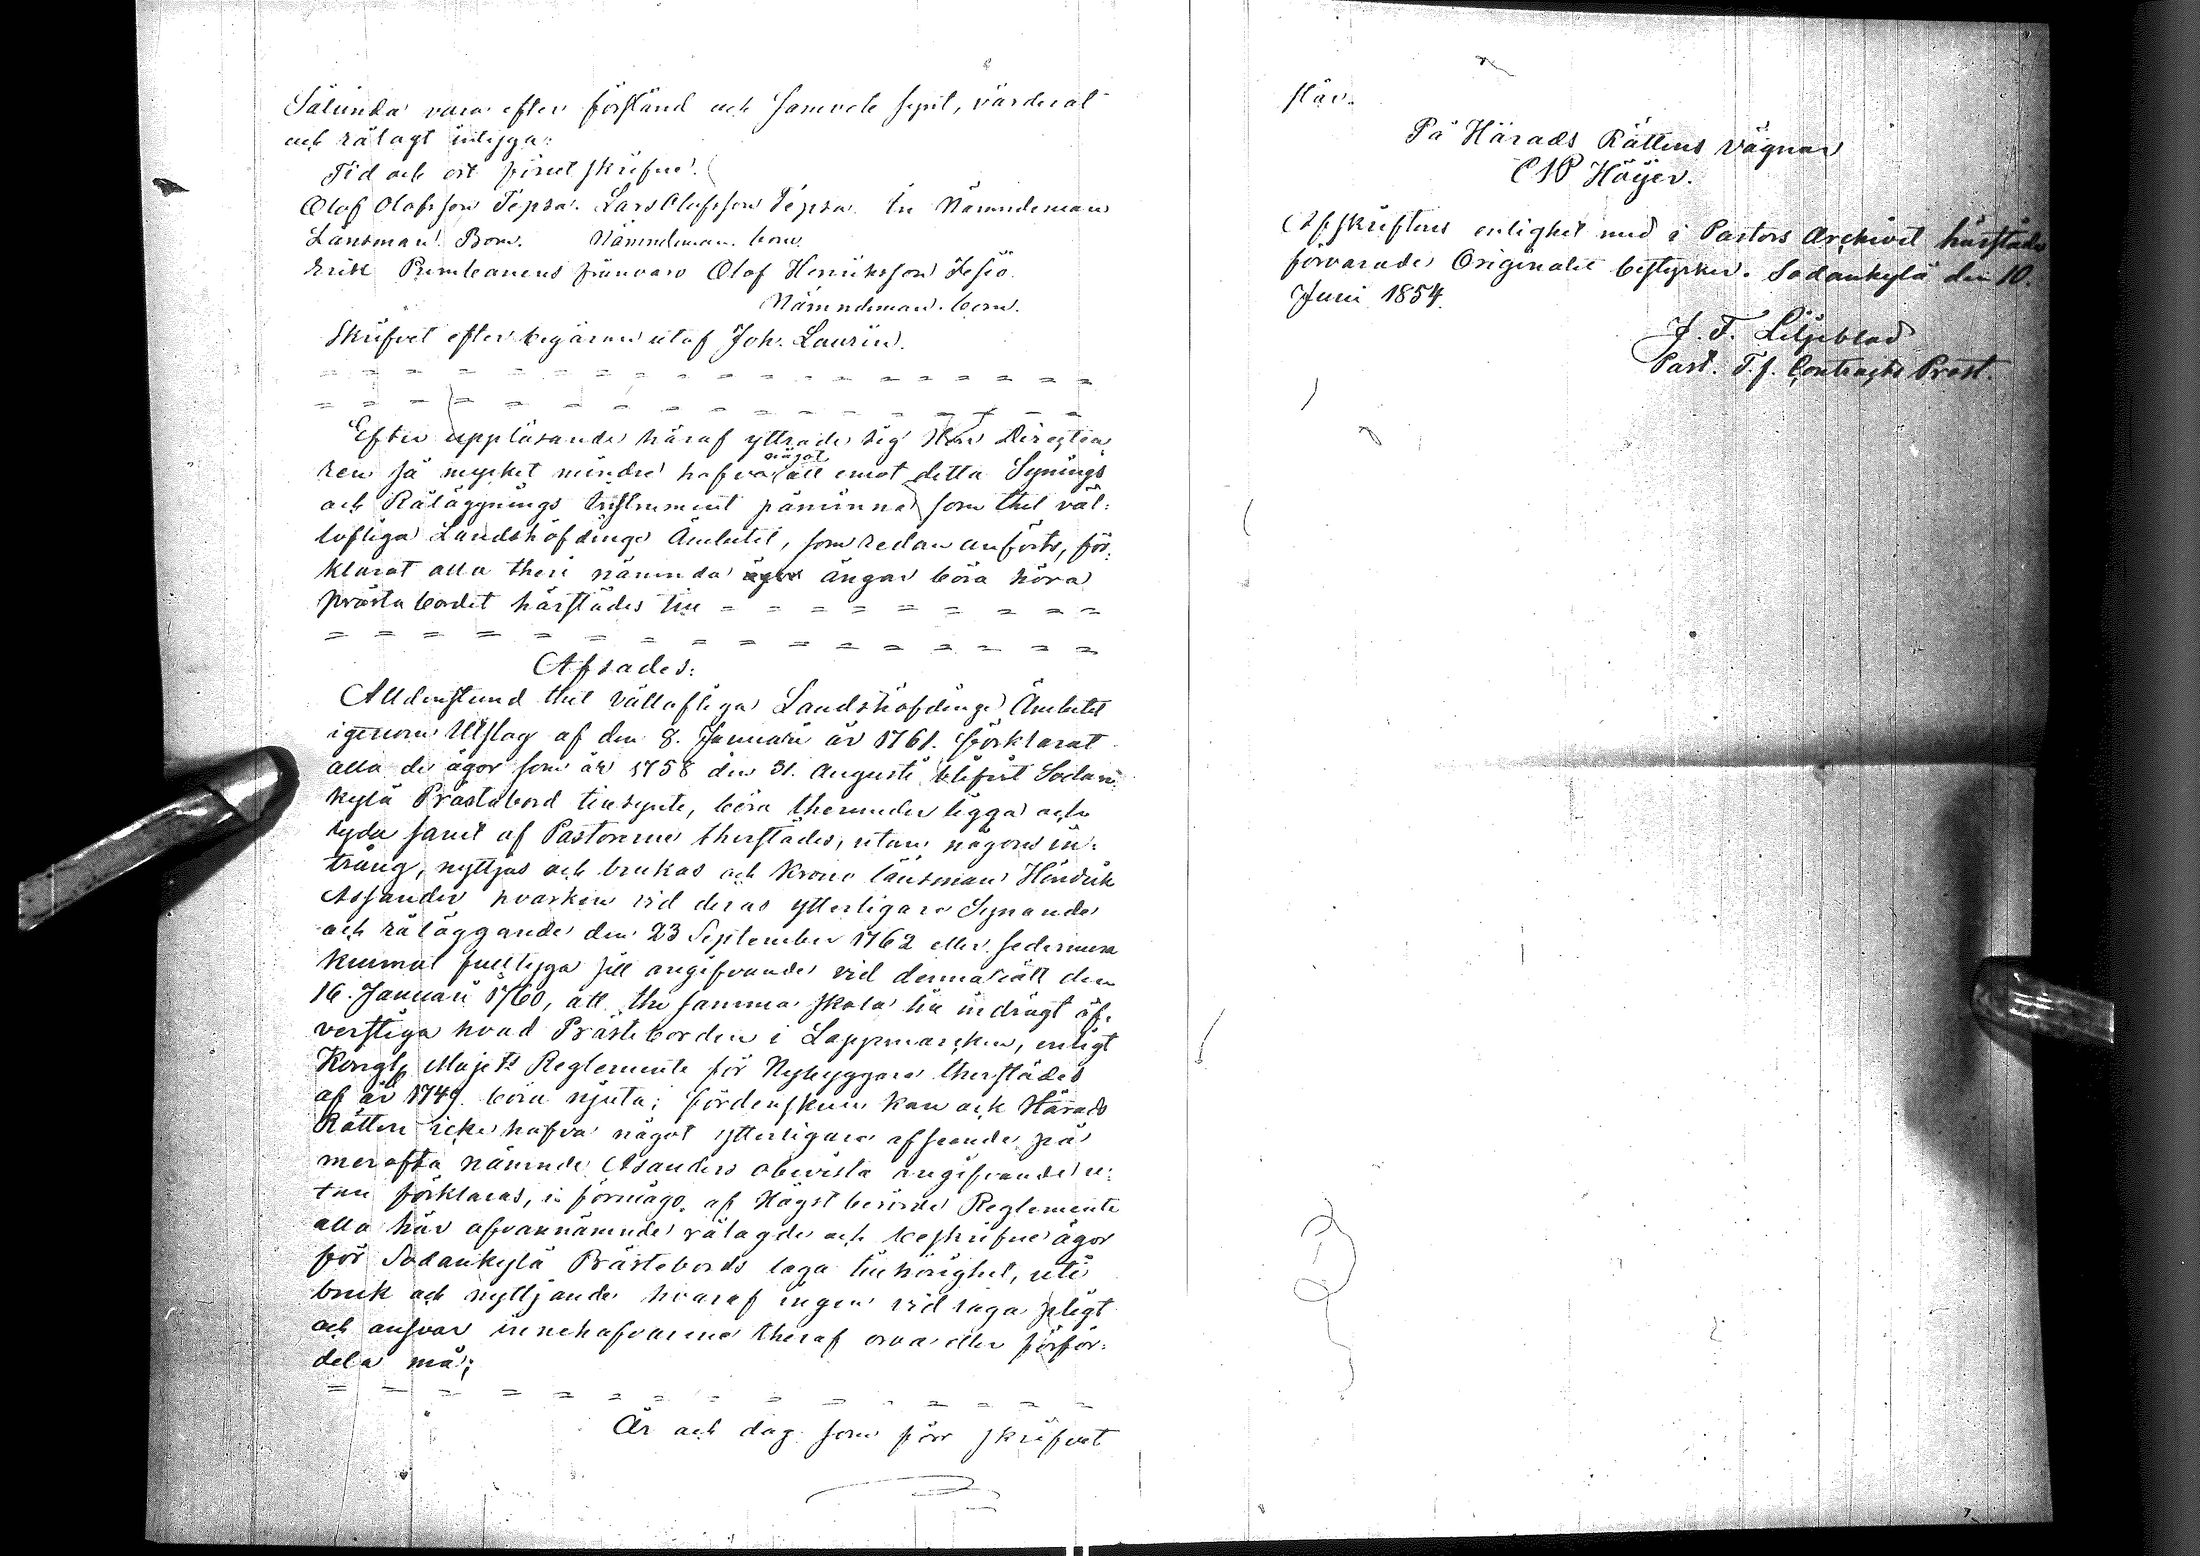 Sålunda vara efter förstånd och samvete synt, värderat
och rålagt intyga.
Tid och ort förut skrifne.
Olof Olofsson Tepsa. Lars Olofsson Tepsa. En Nämndeman
Länsman. Bom. Nämndeman. bom.
Erik frånvaro Olof Henriksson Jesiö.
Nämndeman. bom.
Skrifvet efter begäran utaf Joh. Laurin.
Efter uppläsande häraf yttrade sig Herr Directeu-
ren så mycket mindre hafva något att emot detta Synings
och Råläggnings Instrument påminna, som thet väl-
lofliga Landshöfdinge Ämbetet, som redan anförts, för-
klarat alla theri nämnda ängar böra höra
prästa bordet härstädes till
Afsades:
Alldenstund thet Vällofliga Landshöfdinge Ämbetet
igenom Utslag af den 8. Januari år 1761. förklarat
alla de ägor som år 1758 den 31. Augusti blifvit Sodan-
kylä Prästabord tillsynte, böra therunder ligga och
lyda samt af Pastorerne therstädes, utan någons in-
trång, nyttjas och brukas och Krono länsman Hindrik
Assander hvarken vid deras ytterligare Synande
och råläggande den 23 September 1762 eller sedermera
kunnat fulltyga sitt angifvande vid denna rätt den
16. Januari 1760, att the samma skola till indrägt öf-
verstiga hvad Prästeborden i Lappmarken, enligt
Kongl. Maj:ts Reglemente för Nybyggare therstädes
af år 1749. böra njuta; fördenskull kan ock Härads
Rätten icke hafva något ytterligare afseende på
merofta nämnde Asanders obevista angifvande u-
tan förklaras, i förmågo af Högst berörde Reglemente
alla här ofvannämnde rålagde och beskrifne ägor
för Sodankylä Prästebords laga tillhörighet, uti
bruk och nyttjande hvaraf ingen vid laga pligt
och ansvar innehafvarena theraf oroa eller förför-
dela må;
År och dag som förr skrifvet
står.
På Härads Rättens vägnar
C N P Höijer.
Afskriftens enlighet med i Pastors Archivet härstädes
förvarade Originalet bestyrker. Sodankylä den 10.
Juni 1854.
J. F. Liljeblad
Past. T.f. Contracts Prost.